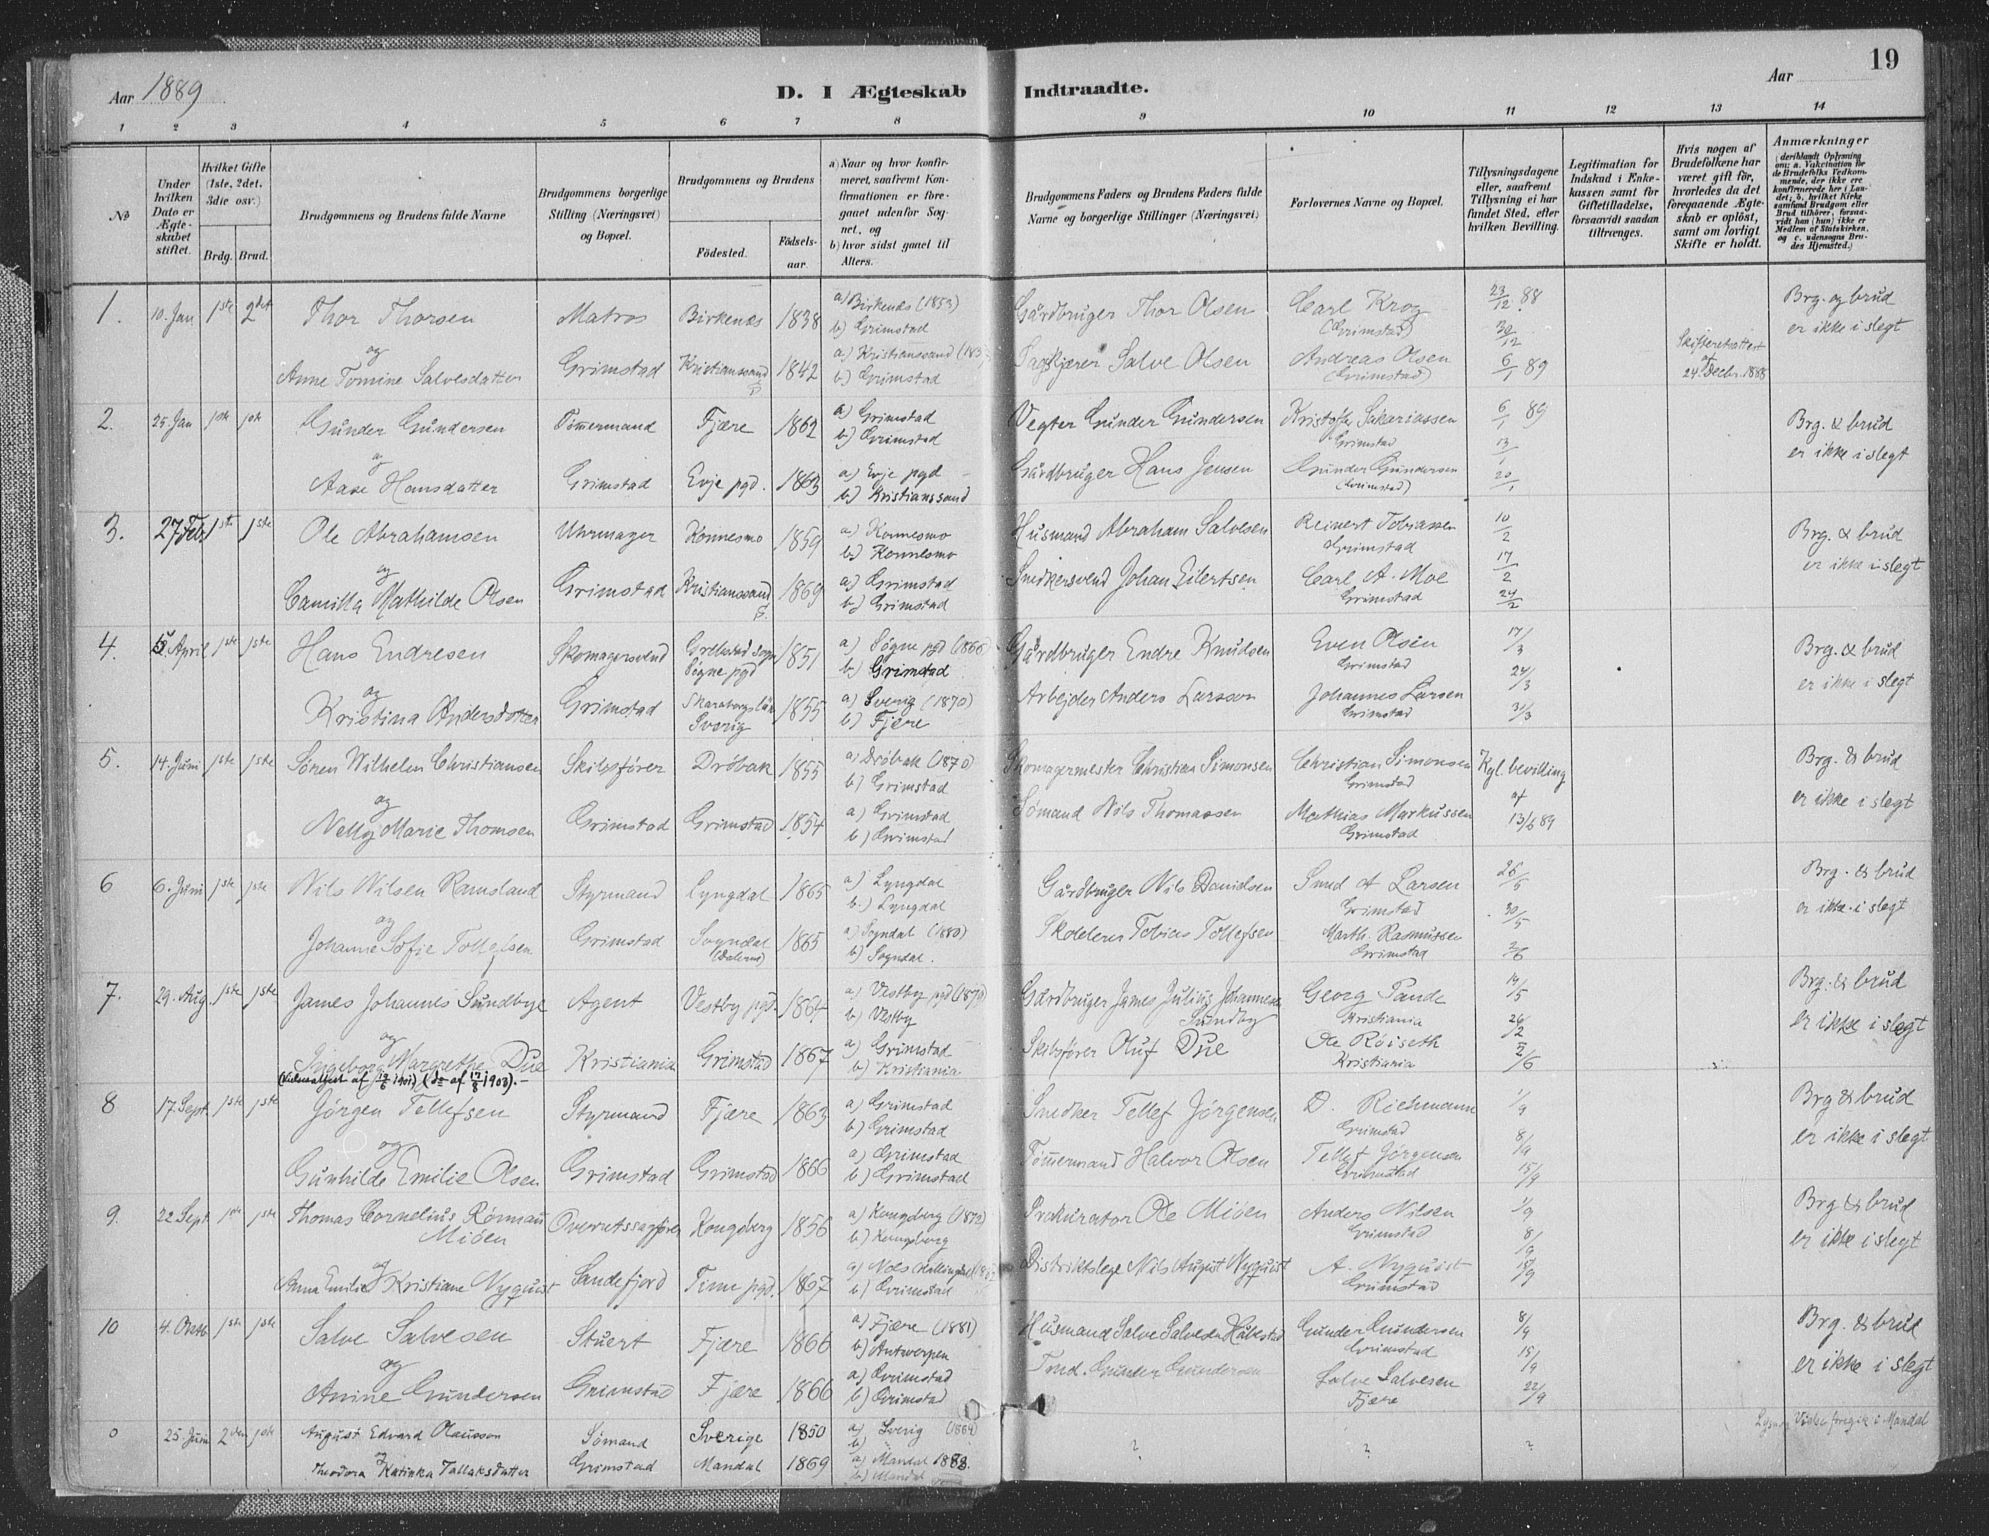 Aar 1889
D. I Ægteskab Indtraadte.
Aar
19
1 2 3 4 5 6 7 8 9 10 11 12 13 14
No
Under hvilken Dato er Ægteskabet stiftet.
Hvilket Gifte (1ste, 2det, 3die osv.)
Brdg. Brud.
Brudgommens og Brudens fulde Navne
Brudgommens borgerlige Stilling (Næringsvei) og Bopæl.
Brudgommens og Brudens
Fødested.
Fødselsaar.
a) Naar og hvor konfirmeret, saafremt Konfirmationen er foregaaet udenfor Sognet, og
b) hvor sidst gaaet til Alters.
Brudgommens Faders og Brudens Faders fulde Navne og borgerlige Stillinger (Næringsvei)
Forlovernes Navne og Bopæl.
Tillysningsdagene eller, saafremt Tillysning ei har fundet Sted, efter hvilken Bevilling.
Legitimation for Indskud i Enkekassen samt for Giftetilladelse, forsaavidt saadan tiltrænges.
Hvis nogen af Brudefolkene har været gift før, hvorledes da det foregaaende Ægteskab er opløst, samt om lovligt Skifte er holdt.
Anmærkninger
(deriblandt Oplysning om: a. Vakcination for de Brudefolks Vedkommende, der ikke ere konfirmerede her i Landet; b. hvilket Kirkesamfund Brudgom eller Brud tilhører, forsaavidt han (hun) ikke er Medlem af Statskirken, og c. udensogns Brudes Hjemsted.)
1. 10. Jan 1ste 2det Thor Thorsen Matros Birkenæs 1838 a) Birkenæs (1853) b) Grimstad Gårdbruger Thor Olsen Carl Krog (Grimstad) 23/12 88 30/12 Brg. og brud er ikke i slegt
og
Anne Tomine Salvesdatter Grimstad Kristianssand 1842 a) Kristianssand b) Grimstad Salve Olsen Andreas Olsen (Grimstad) 6/1 89 Skifteretsattest af 24. Decbr. 1888
2. 25. Jan 1ste 1ste Gunder Gundersen Tømmermand Fjære 1862 a) Grimstad b) Grimstad Vegter Gunder Gundersen Kristoffer Sakariassen Grimstad 6/1 89 13/1 Brg. & brud er ikke i slegt
og
Aase Hansdatter Grimstad Evje pgd. 1863 a) Evje pgd b) Kristianssand Gårdbruger Hans Jensen Gunder Gundersen (Grimstad) 20/1
3. 27 Feb. 1ste 1ste Ole Abrahamsen Uhrmager Konnesmo 1859 a) Konnesmo b) Konnesmo Husmand Abraham Salvesen Reinert Tobiassen Grimstad 10/2 17/2 Brg. & brud er ikke i slegt
og
Camilla Mathilde Olsen Grimstad Kristianssand S. 1869 a) Grimstad b) Grimstad Snedkersvend Johan Eilertsen Carl A. Moe Grimstad 24/2
4. 5. April 1ste 1ste Hans Endresen Skomagersvend Søgne pgd 1851 a) Søgne pgd (1866) b) Grimstad Gårdbruger Endre Knudsen Even Olsen Grimstad 17/3 24/3 Brg. & brud er ikke i slegt
og
Kristina Andersdatter Grimstad Skaraborgslän Sverig 1855 a) Sverig (1870) b) Fjære Arbejder Anders Larsson Johannes Larsen Grimstad 31/3
5. 14. Juni 1ste 1ste Søren Wilhelm Christiansen Skibsfører Drøbak 1855 a) Drøbak (1870) b) Grimstad Skomagermester Christian Simonsen Christian Simonsen Grimstad Kgl. bevilling af Brg. & brud er ikke i slegt
og
Nelly Marie Thomsen Grimstad Grimstad 1854 a) Grimstad b) Grimstad Sømand Nils Thomassen Mathias Markussen Grimstad 13/6 89
6 6. Juni 1ste 1ste Nils Nilsen Ramsland Styrmand Lyngdal 1865 a) Lyngdal b) Lyngdal Gårdbruger Nils Danielsen Smed A Larsen Grimstad 26/5 30/5 Brg. & brud er ikke i slegt
og
Johanne Sofie Tollefsen Grimstad Sogndal (Dalerne) 1865 a) Sogndal (1880) b) Sogndal. Tobias Tollefsen Marth. Rasmussen Grimstad 2/6
7. 29. Aug. 1ste 1ste James Johannes Sundbye Agent Vestby pgd. 1864 a) Vestby pgd (1879) b) Vestby Gårdbruger James Julius Johannesen Sundby Georg Pande Kristiania 19/5 26/ Brg. & brud er ikke i slegt
og
Ingeborg Margrethe Due Kristiania Grimstad 1867 a) Grimstad b) Kristiania Skibsfører Oluf Due Ole Röiseth Kristiania 2/6
(Vielsesattest af 12/6 1901) (do af 17/8 1903).
8 17. Sept. 1ste 1ste Jørgen Tellefsen Styrmand Fjære 1863 a) Grimstad b) Grimstad Snedker Tellef Jørgensen D. Richmann Grimstad 1/9 8/9 Brg & brud er ikke i slegt
og
Gunhilde Emilie Olsen Grimstad Grimstad 1866 a) Grimstad b) Grimstad Tømmermand Halvor Olsen Tellef Jørgensen Grimstad 15/9
9. 22 Sept. 1ste 1ste Thomas Cornelius Rømau Miøen Overretssagfører Kongsberg 1856 a) Kongsberg (1872) b) Kongsberg Prokurator Ole Miøen Anders Nilsen Grimstad 1/9 8/9 Brg & brud er ikke i slegt
og
Anna Emilie Kristiane Nyquist Sandefjord Tinn pgd. 1867 a) Næs Hallingdal b) Grimstad Distriktslege Nils August Nyquist A. Nyquist Grimstad 15/9
10 4. Octb 1ste 1ste Salve Salvesen Stuert Fjære 1866 a) Fjære (1881) b) Antwerpen Husmand Salve Salvesen Håbestad Gunder Gundersen Grimstad 8/9 15/9 Brg. & brud er ikke i slegt
og
Anine Gundersen Grimstad Fjære 1866 a) Grimstad b) Grimstad Tmd. Gunder Gundersen Salve Salvesen Fjære 22/9
0 25. Juni 2den 1ste August Edvard Olausson Sømand Sverige 1850 a) Sverig (1864) b) " ? ? ? Vielse foregik i Mandal
og
Theodora Katinka Tallaksdatter Grimstad Mandal 1869 a) Mandal 1883. b) Mandal